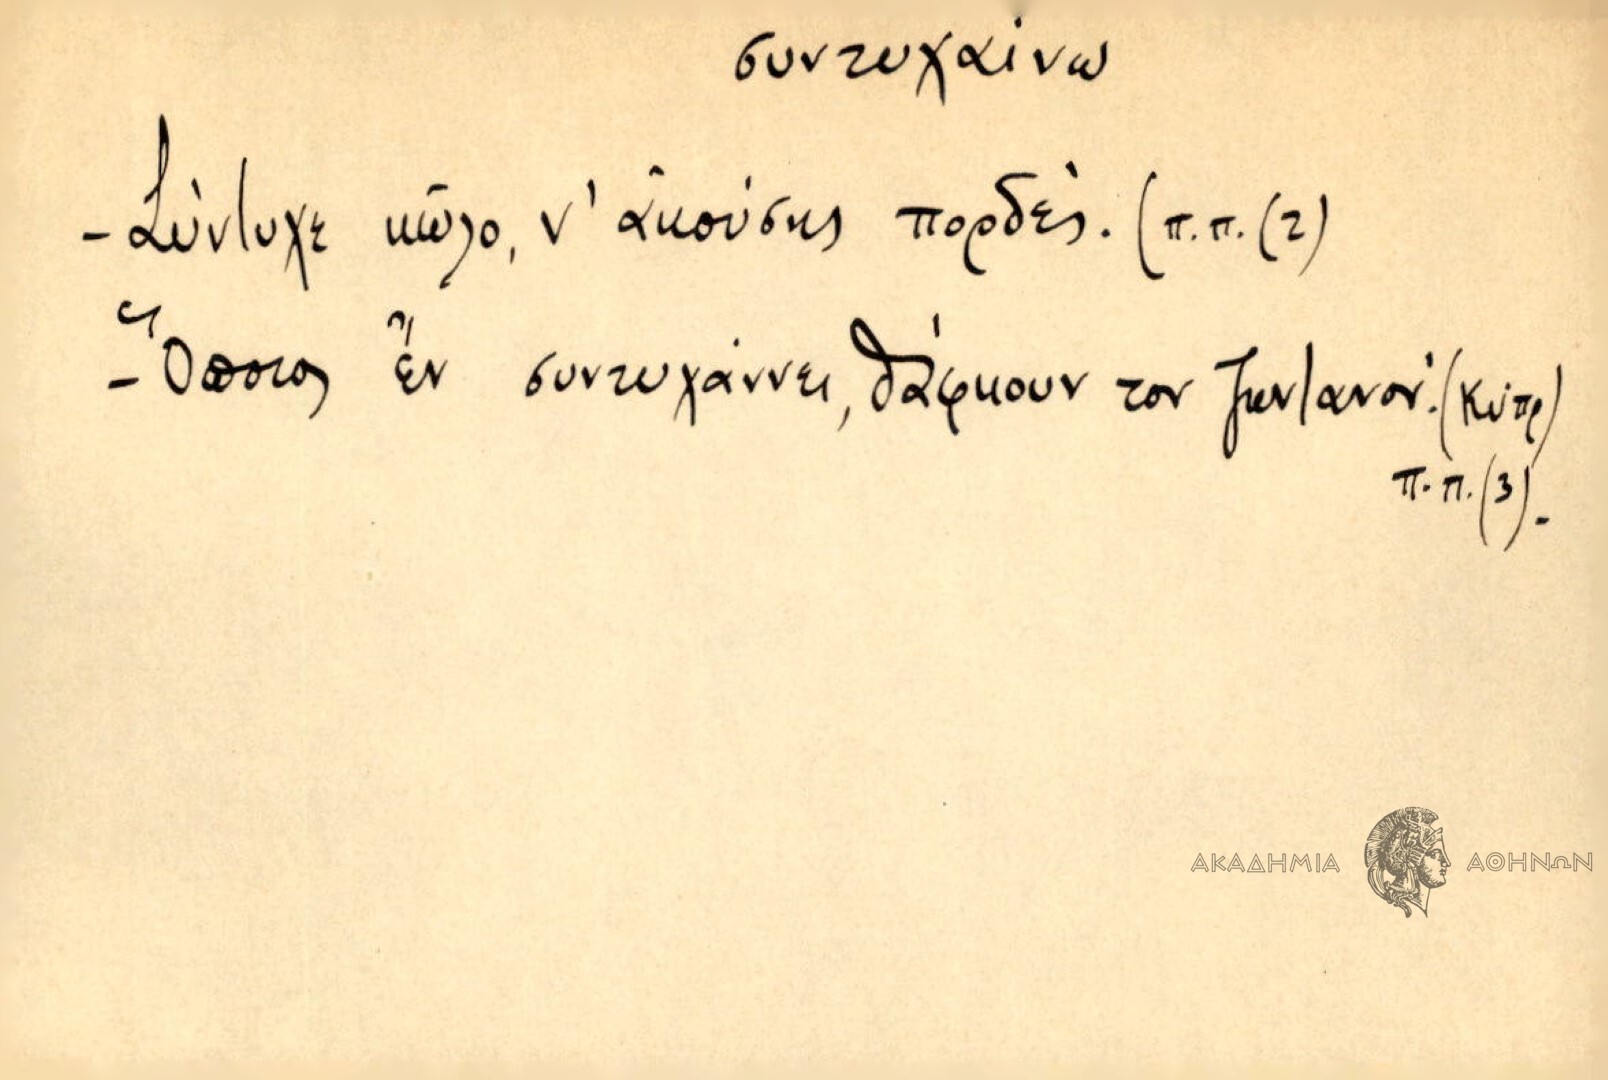 συντυχαίνω
- Σύντυχε κῶλο, ν' ἀκούσης πορδές. (π.π. (2)
- Ὅποιος ἒν συντυχάννει, θάφκουν τον ζωντανόν. (Κύπρ)
π.π. (3).
ΑΚΑΔΗΜΙΑ ΑΘΗΝΩΝ